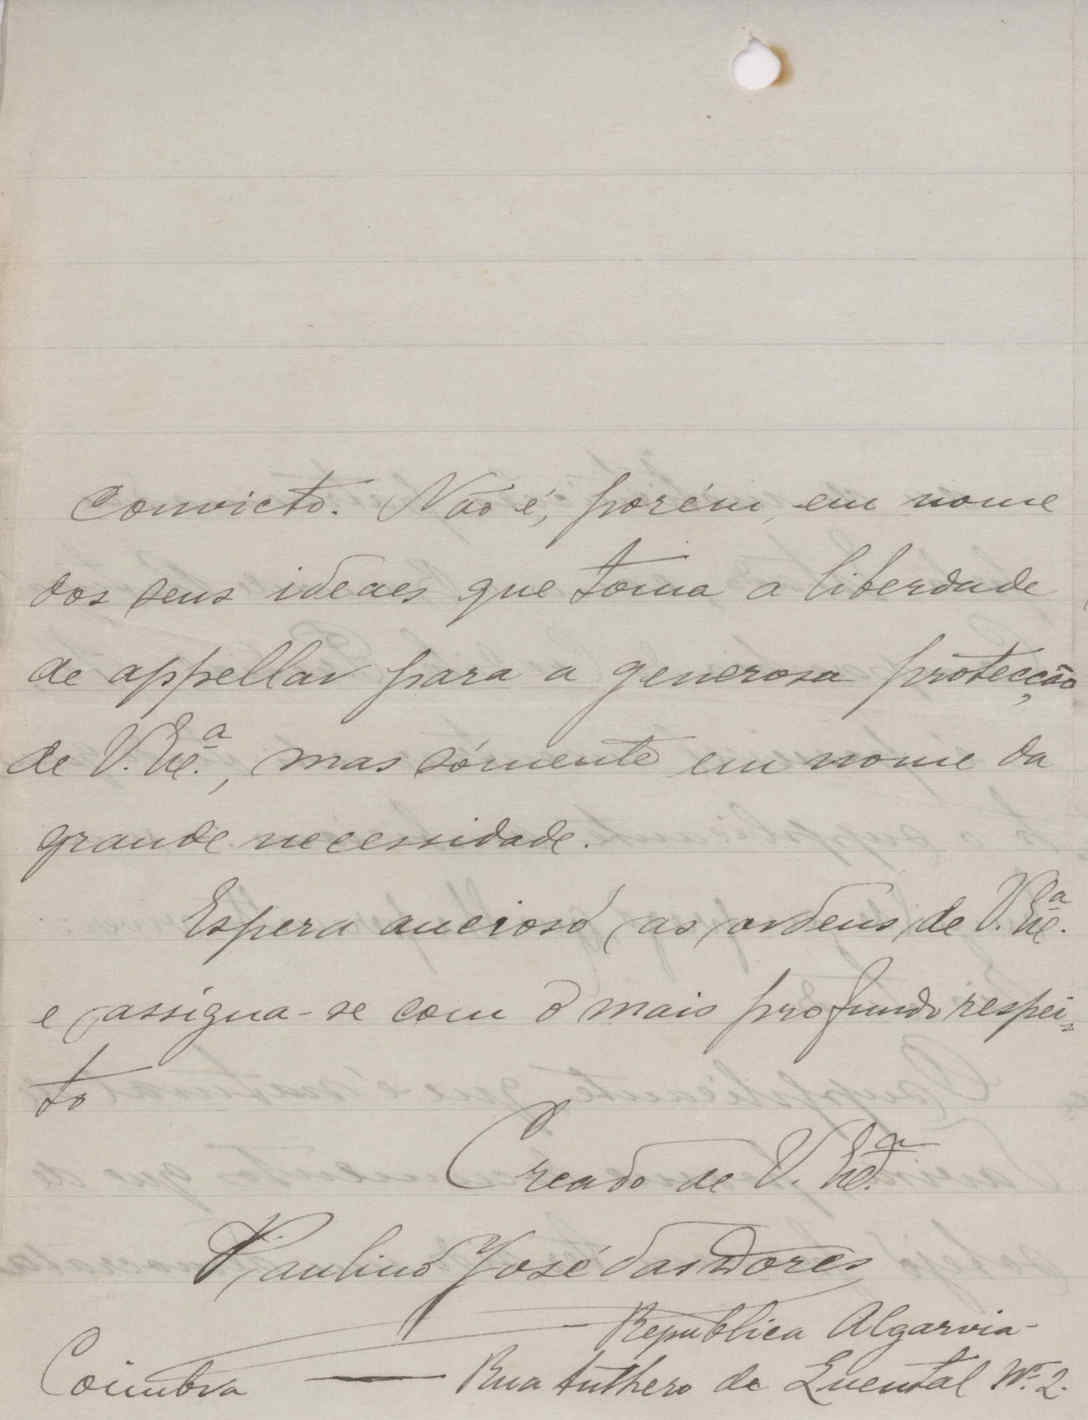 convicto. Não é, porém, em nome
dos seus ideaes que toma a liberdade
de appellar para a generosa protecção
de V. Exc.ª, mas sómente em nome da
grande necessidade.
Espera ancioso as ordens de V. Exc.ª
e assigna-se com o mais profundo respei-
to
Creado de V. Exc.ª
Paulino José das Dores
Republica Algarvia-
Coimbra — Rua Anthero de Quental Nº 2.